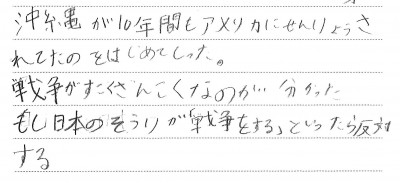 沖縄が10年間もアメリカにせんりょうさ
れてたのをはじめてしった。
戦争がすごくざんこくなのが分かった
もし日本のそうりが「戦争をする」といったら反対
する